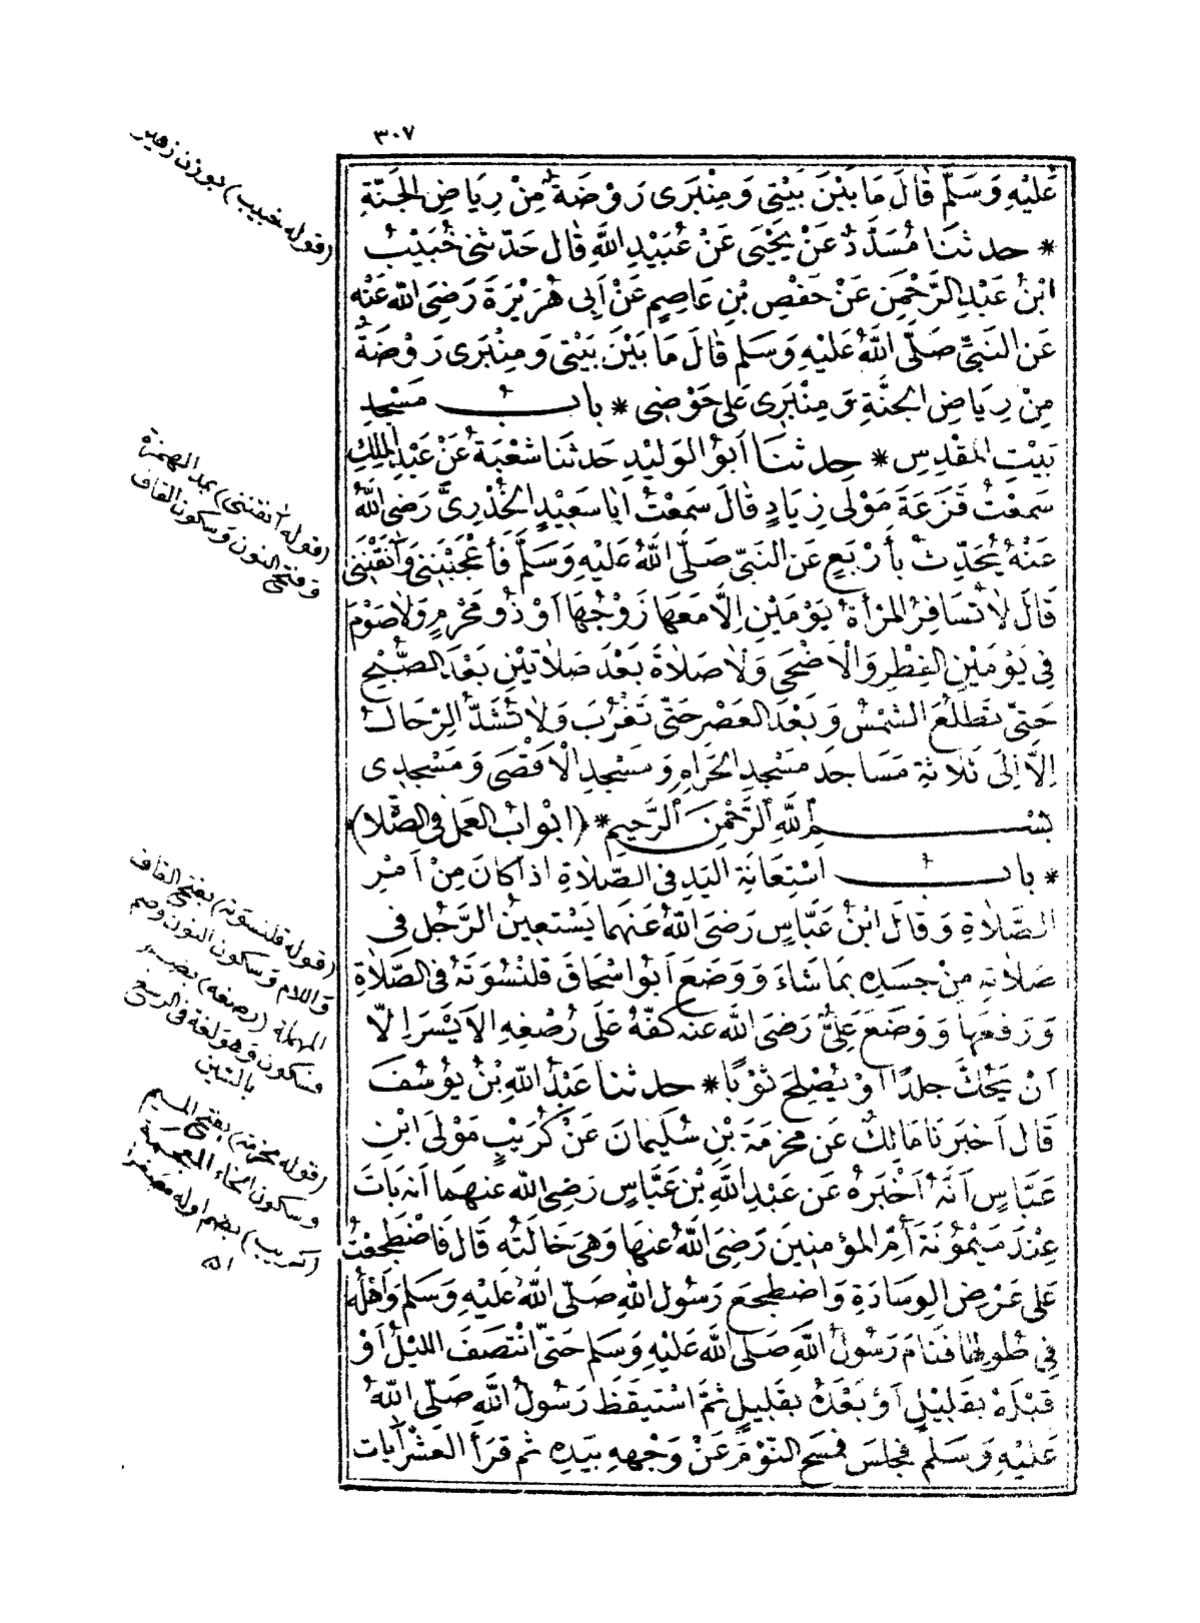 ٣٠٧
عَلَيْهِ وَسَلَّمَ قَالَ مَا بَيْنَ بَيْتِى وَمِنْبَرِى رَوْضَةٌ مِنْ رِيَاضِ الجَنَّةِ
* حدثنَا مُسَدَّدٌ عَنْ يَحْيَى عَنْ عُبَيْدِ اللَّهِ قَال حَدّثنى خُبَيْبُ
ابْنُ عَبْدِ الرَّحْمٰنِ عَنْ حَفْصِ بْنِ عَاصِمٍ عَنْ اَبِى هُرَيْرَةَ رَضِىَ اللّٰه عَنْه
عَن النَبِىِّ صَلَّى اللَّهُ عَلَيْهِ وَسَلم قَالَ مَا بَيْنَ بَيْتِى وَمِنْبَرِى رَوْضَةٌ
مِنْ رِيَاضِ الجنَّةِ وَمِنْبَرِى عَلَى حَوْضِى * بابُ مَسْجِدِ
بَيْتِ المَقْدِسِ * حدثنَا اَبُو الوَلِيْدِ حَدثنَا شُعْبَةُ عَنْ عَبْدِ المَلِكِ
سَمعْتُ قَزَعَةَ مَوْلَى زِيَادٍ قَالَ سَمِعْتُ اَبَا سَعِيْدٍ الخُدْرِىَّ رَضِىَ اللَّهُ
عَنْهُ يُحَدِّثُ بأَرْبَعٍ عَن النَبىّ صَلَّى اللَّهُ عَلَيْهِ وَسَلَّمَ فَأَعْجَبْنَنِى وَآنَقْنَنِى
قَالَ لاَ تُسَافِرُ المَرْأَةُ يَوْمَيْنِ اِلاَّ مَعَهَا زَوْجُهَا اَوْ ذُو مَحْرَمٍ وَلاَ صَوْمَ
فِى يَوْمَيْنِ الفِطْرِ وَالْاَضْحَى وَلاَ صَلاَةَ بَعْدَ صَلاَتَيْنِ بَعْدَ الصُّبْحِ
حَتىّ تطْلُعَ الشَمْسُ وَبَعْدَ العَصْرِ حَتىّ تَغْرُبَ وَلاَ تُشَدُّ الرِّحَالُ
اِلاَّ اِلَى ثَلاَثةِ مَسَاجِدَ مَسْجِدِ الحَرَامِ وَمَسْجِدِ الْاَقْصَى وَمَسْجِدِى
بِسْمِ اللَّهِ الرَّحْمٰنِ الرَّحِيمِ * (ابْوَابُ العَمَل فى الصَّلاة)
* بابُ اسْتِعَانَةِ اليَدِ فى الصَّلاَةِ اذا كَانَ مِنْ اَمْرِ
الصَّلاَةِ وَقَالَ ابْنُ عَبَّاسٍ رَضِىَ اللَّهُ عَنهما يَسْتَعِينُ الرَّجُل فى
صَلاَتِهِ مِنْ جَسَدِهِ بمَا شَاءَ وَوَضَعَ اَبُو اسْحَاقَ قَلَنْسُوَتَهُ فى الصَّلاَةِ
وَرَفعَها وَوَضَعَ عَلِىٌّ رَضِىَ اللّٰه عَنه كفَّهُ عَلَى رُصْغِهِ الاَيْسَرِ اِلاّ
اَنْ يَحُكَّ جلدًا اَوْ يُصْلِحَ ثوْبًا * حدثنا عَبْدُ اللّٰهِ بْنُ يُوسُفَ
قَال اَخبَرَنَا مَالِكٌ عَن مخرَمَةَ بْنِ سُلَيمَانَ عَنْ كُرَيْبٍ مَوْلَى ابْنِ
عَبَّاسٍ اَنَّهُ اَخْبَرَهُ عَن عَبْدِ اللَّهِ بْنِ عَبَّاسٍ رَضِىَ اللّٰه عنهمَا اَنه بَاتَ
عِنْدَ مَيْمُوْنَةَ أُمِّ المؤمنِينَ رَضِىَ اللَّهُ عنهَا وَهىَ خَالَتُهُ قَالَ فَاضْطَجَعْتُ
عَلى عَرْضِ الوِسَادَةِ وَاضطجعَ رَسُولُ اللّٰهِ صَلّى اللَّهُ عَليْهِ وَسَلم وَاَهْلُهُ
فى طُولهَا فَنَامَ رَسُولُ اللّٰهِ صَلى اللّٰه عَلَيْهِ وَسَلم حَتىَّ انْتَصَفَ الليْلُ اَوْ
قَبْلَهُ بقَلِيْلٍ اَوْ بَعْدَهُ بقَلِيلٍ ثمَّ اسْتيقَظَ رَسُولُ اللّٰهِ صَلّى اللّٰهُ
عَلَيْهِ وَسَلمَ فجلسَ فمَسَحَ النَوْمَ عَنْ وَجْههِ بيَدِهِ ثم قرَأَ العَشْرَ آيات
(قوله خبيب) بوزن زهير
(قوله آنقننى) بمد الهمزة
وفتح النون وسكون القاف
(قوله قلنسوته) بفتح القاف
واللام وسكون النون وضم
المهملة (رصغه) بضم
فسكون وهو لغة فى الرسغ
بالسين
(قوله مخرمة) بفتح الميم
وسكون الخاء المعجمة
(كريب) بضم اوله مصغرا
اه